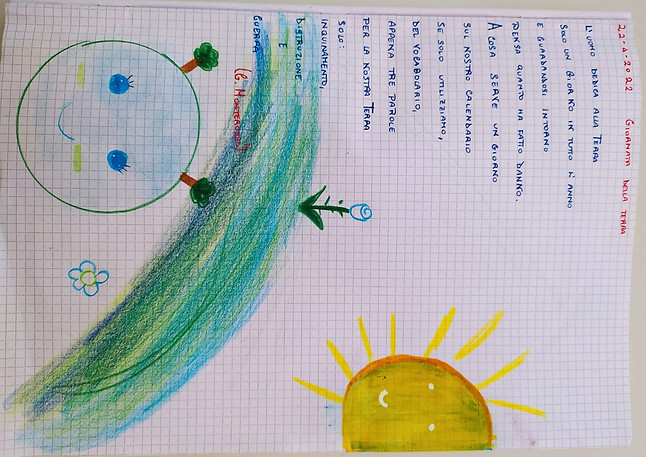 22-4-2022 GIORNATA DELLA TERRA
L'UOMO DEDICA ALLA TERRA
SOLO UN GIORNO IN TUTTO L'ANNO
E GUARDANDOSI INTORNO
PENSA QUANTO HA FATTO DANNO.
A COSA SERVE UN GIORNO
SUL NOSTRO CALENDARIO
SE SOLO UTILIZZIAMO,
DEL VOCABOLARIO,
APPENA TRE PAROLE
PER LA NOSTRA TERRA
SOLO:
INQUINAMENTO,
DISTRUZIONE
E
GUERRA